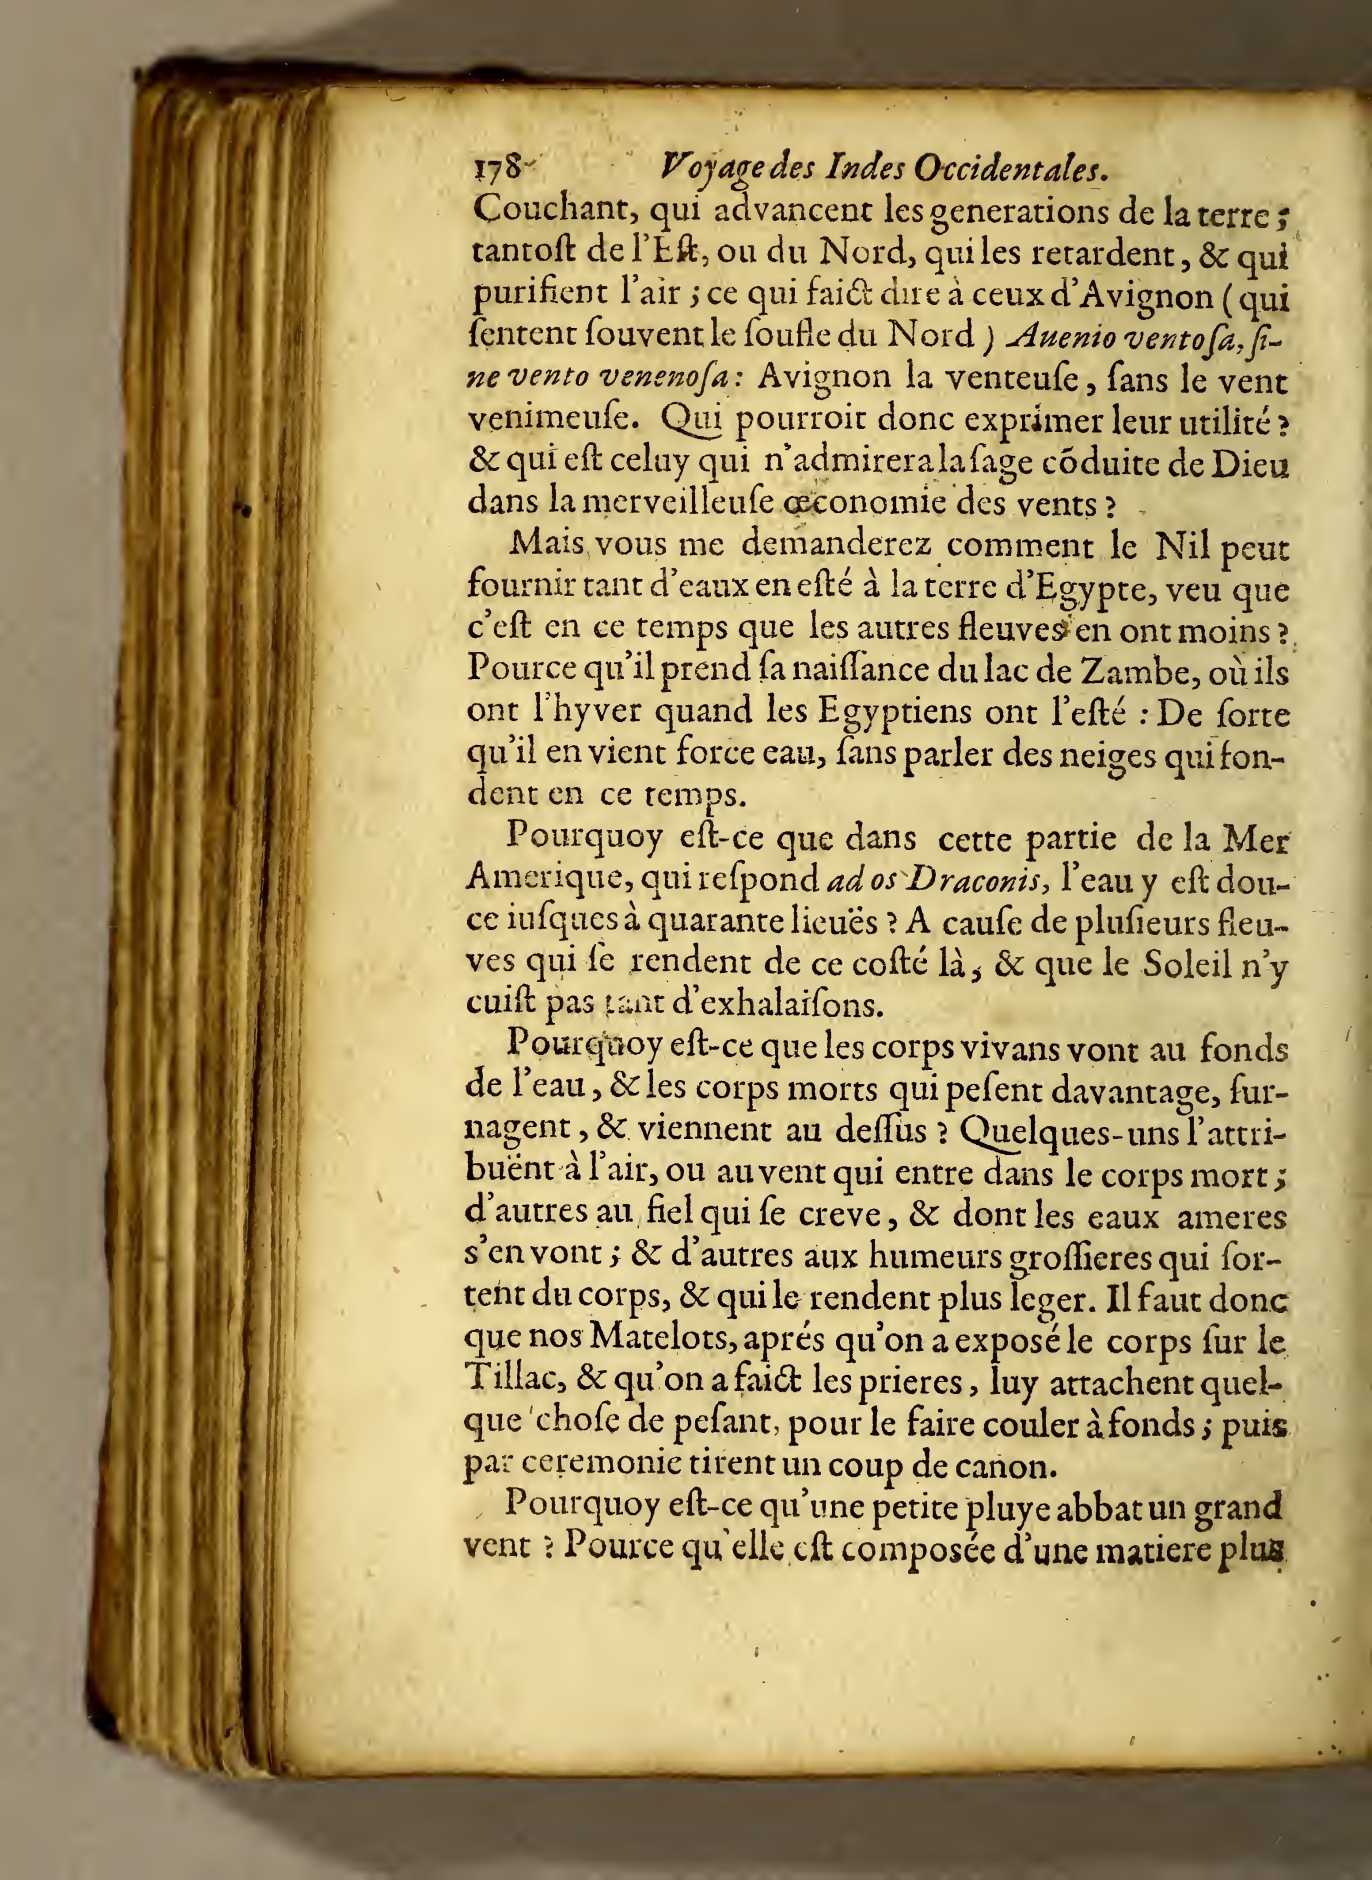 178 Voyage des Indes Occidentales.
Couchant, qui advancent les generations de la terre ;
tantoſt de l'Eſt, ou du Nord, qui les retardent, & qui
purifient l'air ; ce qui faict dire à ceux d'Avignon ( qui
ſentent ſouvent le ſoufle du Nord ) Auenio ventoſa, ſi-
ne vento venenoſa : Avignon la venteuſe, ſans le vent
venimeuſe. Qui pourroit donc exprimer leur utilité ?
& qui eſt celuy qui n'admirera la ſage cõduite de Dieu
dans la merveilleuſe œconomie des vents ?
Mais vous me demanderez comment le Nil peut
fournir tant d'eaux en eſté à la terre d'Egypte, veu que
c'eſt en ce temps que les autres fleuves en ont moins ?
Pource qu'il prend ſa naiſſance du lac de Zambe, où ils
ont l'hyver quand les Egyptiens ont l'eſté : De ſorte
qu'il en vient force eau, ſans parler des neiges qui fon-
dent en ce temps.
Pourquoy eſt-ce que dans cette partie de la Mer
Amerique, qui reſpond ad os Draconis, l'eau y eſt dou-
ce iuſques à quarante lieuës ? A cauſe de pluſieurs fleu-
ves qui ſe rendent de ce coſté là, & que le Soleil n'y
cuiſt pas tant d'exhalaiſons.
Pourquoy eſt-ce que les corps vivans vont au fonds
de l'eau, & les corps morts qui peſent davantage, ſur-
nagent, & viennent au deſſus ? Quelques-uns l'attri-
buënt à l'air, ou au vent qui entre dans le corps mort ;
d'autres au fiel qui ſe creve, & dont les eaux ameres
s'en vont ; & d'autres aux humeurs groſſieres qui ſor-
tent du corps, & qui le rendent plus leger. Il faut donc
que nos Matelots, aprés qu'on a exposé le corps ſur le
Tillac, & qu'on a faict les prieres, luy attachent quel-
que choſe de peſant, pour le faire couler à fonds ; puis
par ceremonie tirent un coup de canon.
Pourquoy eſt-ce qu'une petite pluye abbat un grand
vent ? Pource qu'elle eſt composée d'une matiere plus